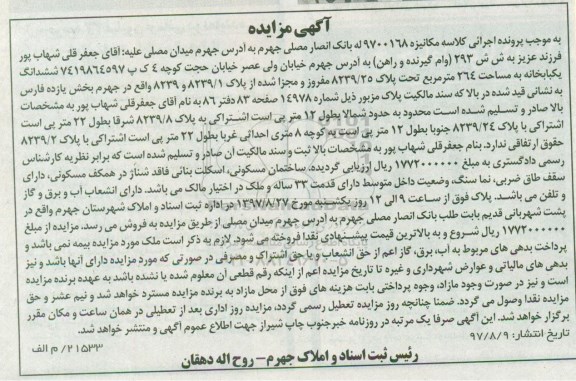 آگهی مزایده
به موجب پرونده اجرائی کلاسه مکانیزه ۹۷۰۰۱۶۸ له بانک انصار مصلی جهرم به ادرس جهرم میدان مصلی علیه: آقای جعفر قلی شهاب پور
فرزند عزیز به ش ش ۲۹۳ (وام گیرنده و راهن) به آدرس جهرم خیابان ولی عصر خیابان حجت کوچه ۴ ک پ ۷۴۱۹۸۶۴۵۹۷ ششدانگ
یکبابخانه به مساحت ۲۶۴ مترمربع تحت پلاک ۸۲۳۹/۲۵ مفروز و مجزا شده از پلاک ۸۲۳۹/۱ و ۸۲۳۹ واقع در جهرم بخش یازده فارس
به نشانی قید شده در بالا که سند مالکیت پلاک مزبور ذیل شماره ۱۴۹۷۸ صفحه ۸۳ دفتر ۸۶ به نام آقای جعفرقلی شهاب پور به مشخصات
بالا صادر و تسلیم شده است محدود به حدود شمالا بطول ۱۲ متر پی است اشتراکی به پلاک ۸۲۳۹/۸ شرقا بطول ۲۲ متر پی است
اشتراکی با پلاک ۸۲۳۹/۲۴ جنوبا بطول ۱۲ متر پی است به کوچه ۸ متری احداثی غربا بطول ۲۲ متر پی است اشتراکی با پلاک ۸۲۳۹/۲
حقوق ارتفاقی ندارد. بنام جعفرقلی شهاب پور به مشخصات بالا ثبت و سند مالکیت آن صادر و تسلیم شده است که برابر نظریه کارشناس
رسمی دادگستری به مبلغ ۱۷۷۲۰۰۰۰۰۰ ریال ارزیابی گردیده. ساختمان مسکونی، اسکلت بنائی فاقد شناژ در همکف مسکونی، دارای
سقف طاق ضربی، نما سنگ، وضعیت داخل متوسط دارای قدمت ۳۳ ساله و ملک در اختیار مالک می باشد. دارای انشعاب آب و برق و گاز
و تلفن می باشد. پلاک فوق از ساعت ۹ الی ۱۲ روز یکشنبه مورخ ۱۳۹۷/۸/۲۷ در اداره ثبت اسناد و املاک شهرستان جهرم واقع در
پشت شهربانی قدیم بابت طلب بانک انصار مصلی جهرم به ادرس جهرم میدان مصلی از طریق مزایده به فروش می رسد. مزایده از مبلغ
۱۷۷۲۰۰۰۰۰۰ ریال شروع و به بالاترین قیمت پیشنهادی نقدا فروخته می شود. لازم به ذکر است ملک مورد مزایده بیمه نمی باشد و
پرداخت بدهی های مربوط به آب، برق، گاز اعم از حق انشعاب و یا حق اشتراک و مصرفی در صورتی که مورد مزایده دارای آنها باشد و نیز
بدهی های مالیاتی و عوارض شهرداری و غیره تا تاریخ مزایده اعم از اینکه رقم قطعی آن معلوم شده یا نشده باشد به عهده برنده مزایده
است و نیز در صورت وجود مازاد، وجوه پرداختی بابت هزینه های فوق از محل مازاد به برنده مزایده مسترد خواهد شد و نیم عشر و حق
مزایده نقدا وصول می گردد. ضمنا چنانچه روز مزایده تعطیل رسمی گردد، مزایده روز اداری بعد از تعطیلی در همان ساعت و مکان مقرر
برگزار خواهد شد. این آگهی صرفا یک مرتبه در روزنامه خبرجنوب چاپ شیراز جهت اطلاع عموم آگهی و منتشر خواهد شد.
تاریخ انتشار: ۹۷/۸/۹
۲۱۵۳۳/ م الف
رئیس ثبت اسناد و املاک جهرم – روح اله دهقان